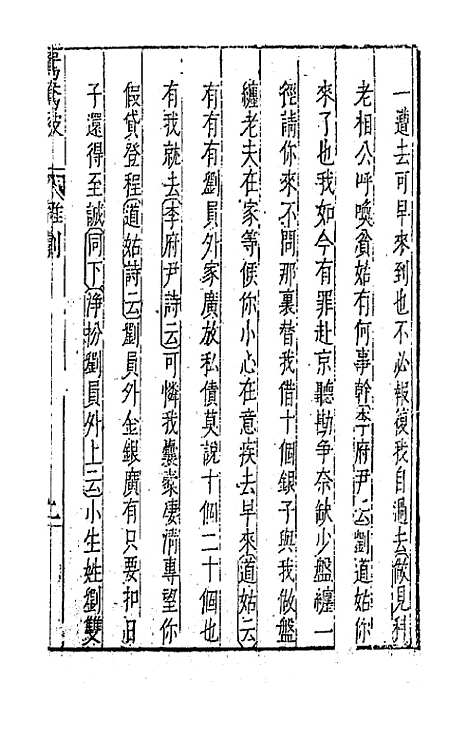 一遭去可早來到也不必報復我自過去做見科
老相公呼喚貧姑有何事幹李府尹云劉道姑你
來了也我如今有罪赴京聽勘争奈缺少盤纏一
徑請你來不問那裏替我借十個銀子與我做盤
纏老夫在家等候你小心在意疾去早來道姑云
有有有劉員外家廣放私債莫說十個二十個也
有我就去李府尹詩云可憐我囊橐凄清專望你
假貸登程道姑詩云劉員外金銀廣有只要扣日
子還得至誠同下淨扮劉員外上云小生姓劉雙
鴛鴦被
雜劇